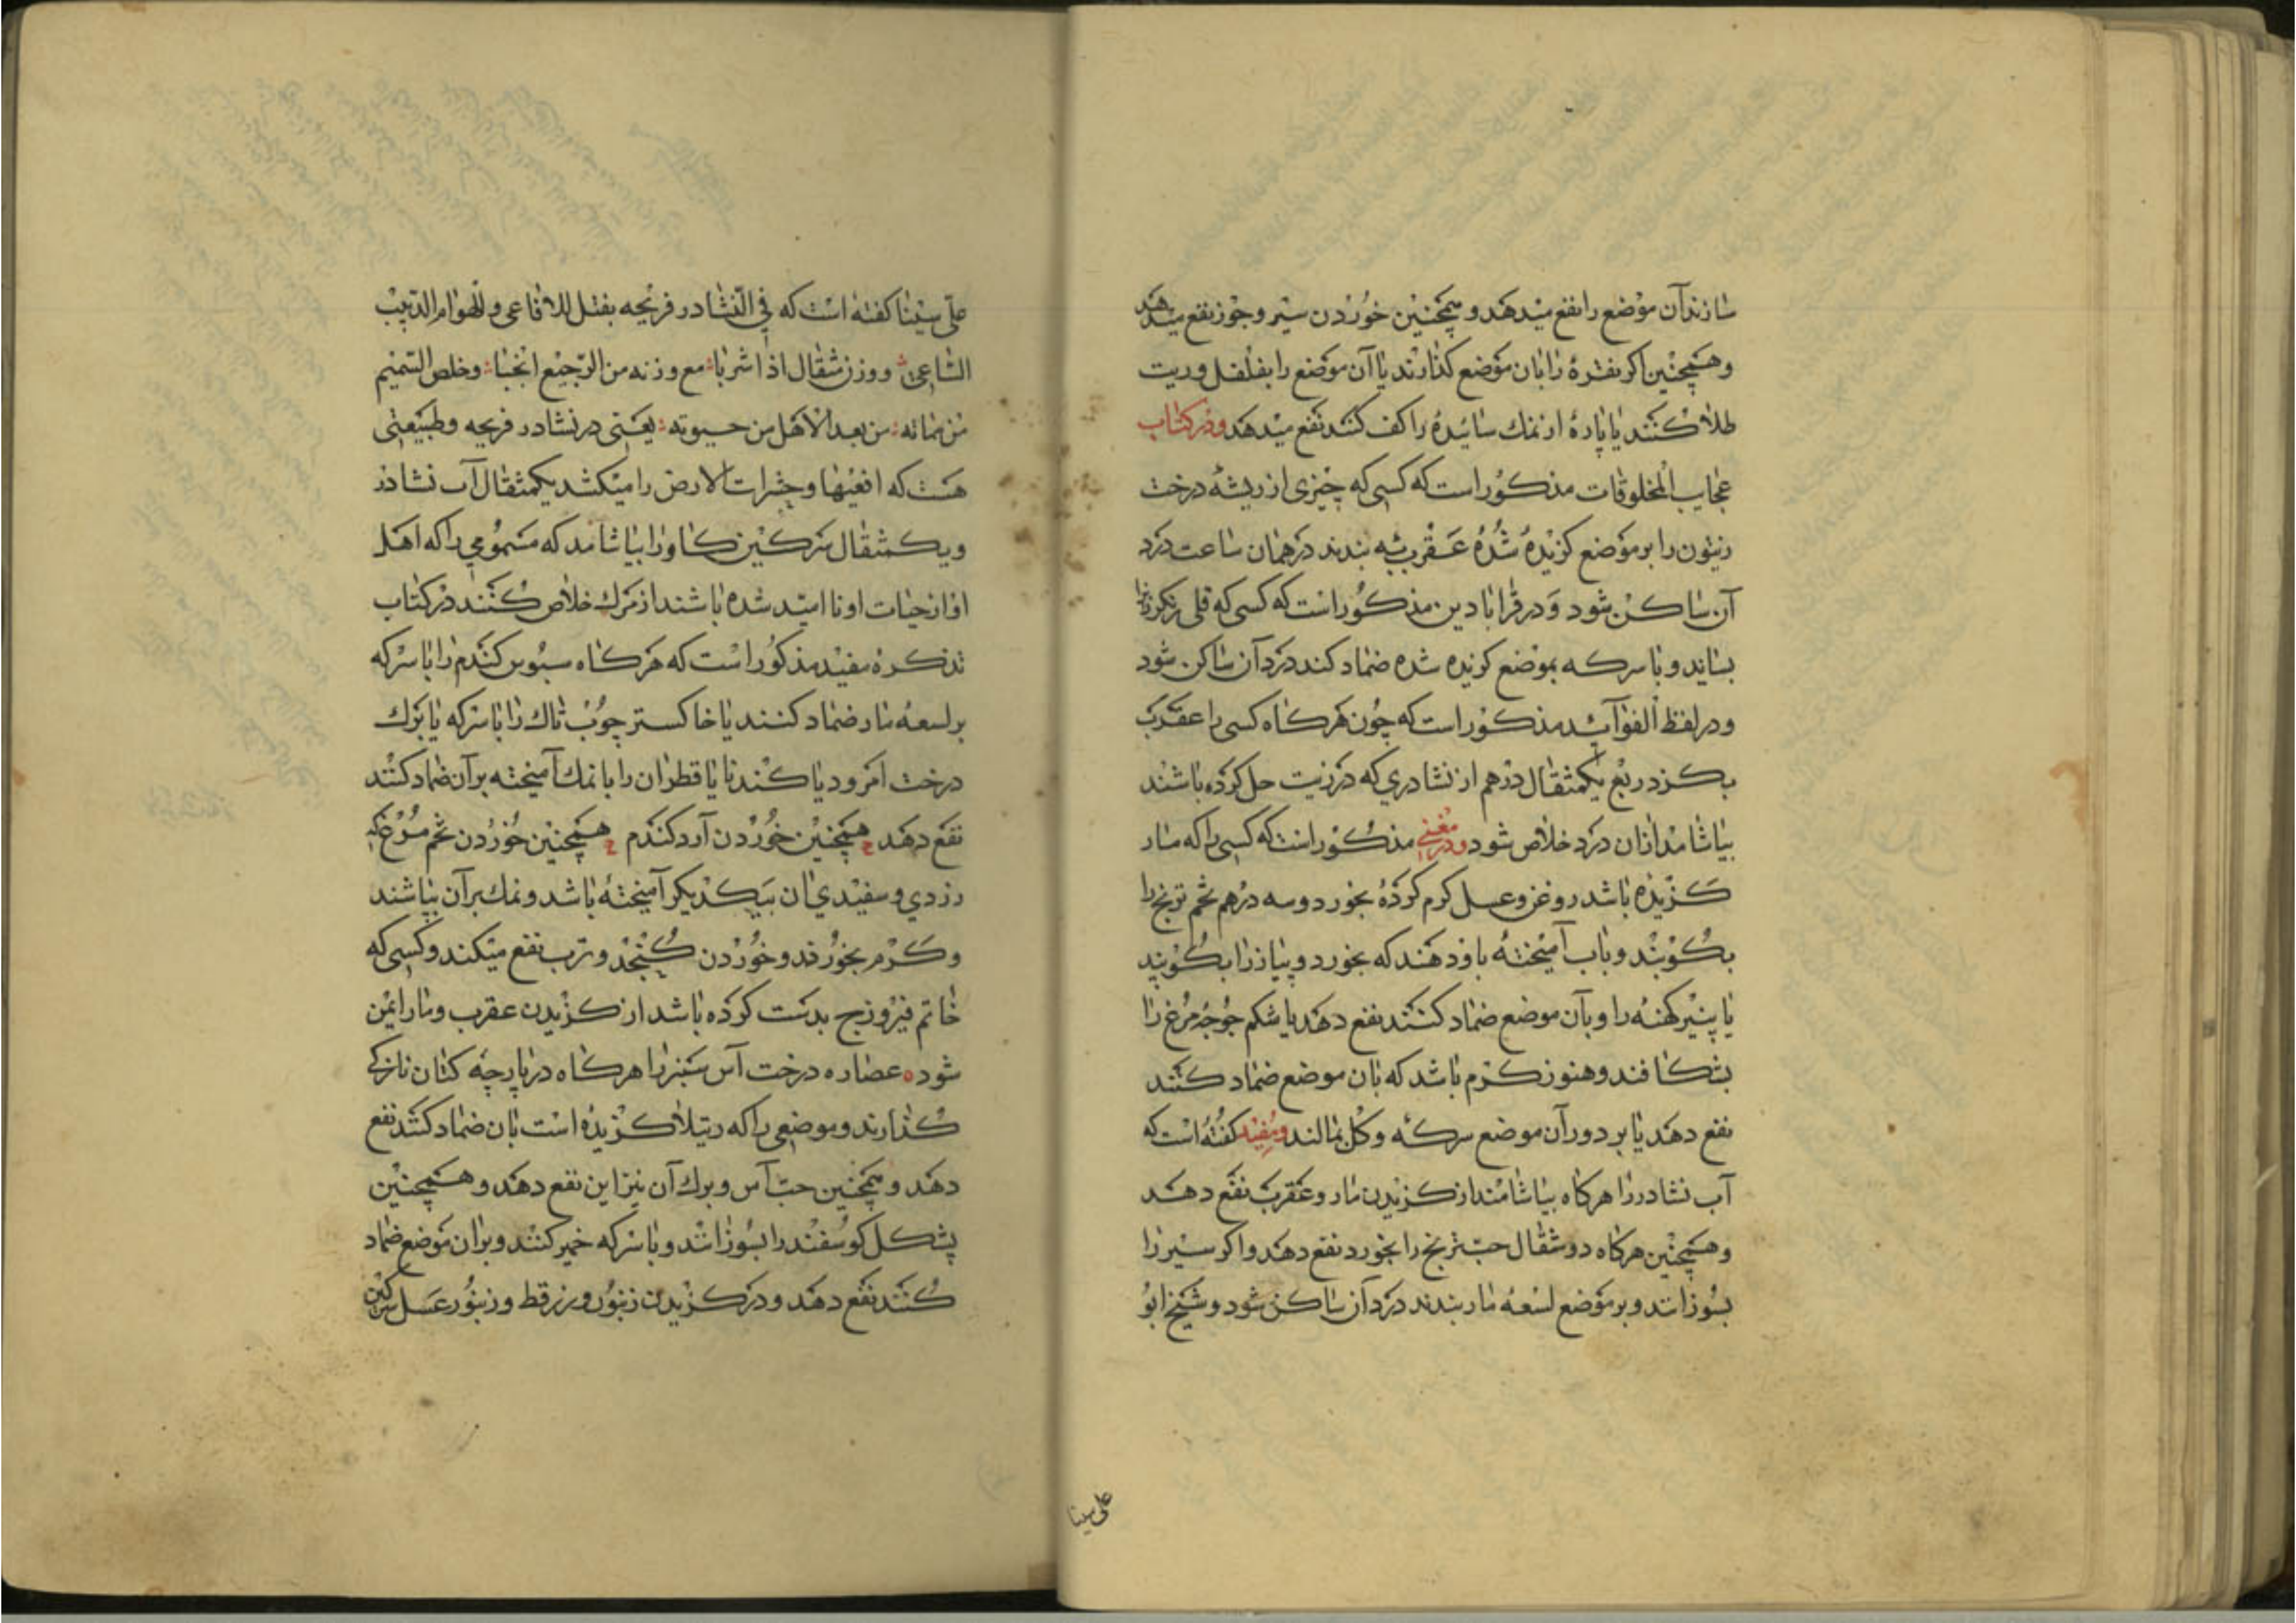 سازند آن موضع را نفع میدهد و همچنین خوردن سیر و جوز نفع میدهد
وهمچنین اکر نقرهٔ را بان موضع کذارند یا آن موضع را بفلفل وریت
طلا کنند یا پارهٔ از نمك سائیدهٔ را کف کنند نفع میدهد ودر کتاب
عجایب المخلوقات مذکور است که کسی که چیزی از ریشهٔ درخت
زیتون را بر موضع کزیدهٔ شدهٔ عقرب به بندند در همان ساعت درد
آن ساکن شود ودر قرابادین مذکور است که کسی که
بساید وبا سرکه بموضع کزیده شده ضماد کند درد آن ساکن شود
ودر لفظ الفوائد مذکور است که چون هر کاه کسی را عقرب
بکزد ربع یکمثقال درهم از نشادری که در زیت حل کرده باشند
بیاشامد از آن درد خلاص شود ودر مغنی مذکور است که کسی را که مار
کزیده باشد روغن وعسل کرم کردهٔ بخورد وسه درهم تخم ترنج را
بکوبند وباب آمیختهٔ باو دهند که بخورد وپیاز را بکوبید
یا پنیر کهنه را وبآن موضع ضماد کنند نفع دهد یا شکم جوجهٔ مرغ را
بشکافند وهنوز کرم باشد که بان موضع ضماد کنند
نفع دهد یا بر دور آن موضع سرکه وکل بمالند ومفید کفته است که
آب نشادر را هرکاه بیاشامند از کزیدن مار وعقرب نفع دهد
وهمچنین هرکاه دو مثقال حب ترنج را بخورد نفع دهد واکر سیر را
بسوزانند وبر موضع لسعه مار بندند درد آن ساکن شود وشیخ ابو
علی سینا
علی سینا کفته است که فی النشادر فریجه بقتل للافاعی وللهوام الدبیب
الساعی ووزن مثقال اذا شربا مع وزنه من الرجیع انجبا وخلص السمیم
من مماته من بعد الاهل من حیوته یعنی در نشادر فریجه وطبیعتی
هست که افعیها وحشرات الارض را میکشد یکمثقال آب نشادر
ویکمثقال سرکین کاو را بیاشامد که مسمومی را که اهل
او از حیات او نا امید شده باشند از مرك خلاص کنند در کتاب
تذکرهٔ مفید مذکور است که هرکاه سبوس کندم را با سرکه
بر لسعهٔ مار ضماد کنند یا خاکستر چوب تاك را با سرکه یا برك
درخت امرود یا کندنا یا قطران را با نمك آمیخته برآن ضماد کنند
نفع دهد همچنین خوردن آرد کندم همچنین خوردن تخم مرغ که
زردی وسفیدی ان بیکدیکر آمیختهٔ باشد ونمك برآن بپاشند
وکرم بخورند وخوردن کنجد وترب نفع میکند وکسی که
خاتم فیروزج بدست کرده باشد از کزیدن عقرب ومار ایمن
شود عصاره درخت آس سبز را هرکاه در پارچهٔ کتان نازکی
کذارند وموضعی را که رتیلا کزیدهٔ است بان ضماد کنند نفع
دهد وهمچنین حب آس وبرك آن نیز این نفع دهد وهمچنین
پشکل کوسفند را بسوزانند وبا سرکه خمیر کنند وبران موضع ضماد
کنند نفع دهد ودر کزیدن زنبور وزرقط وزنبور عسل سرکین